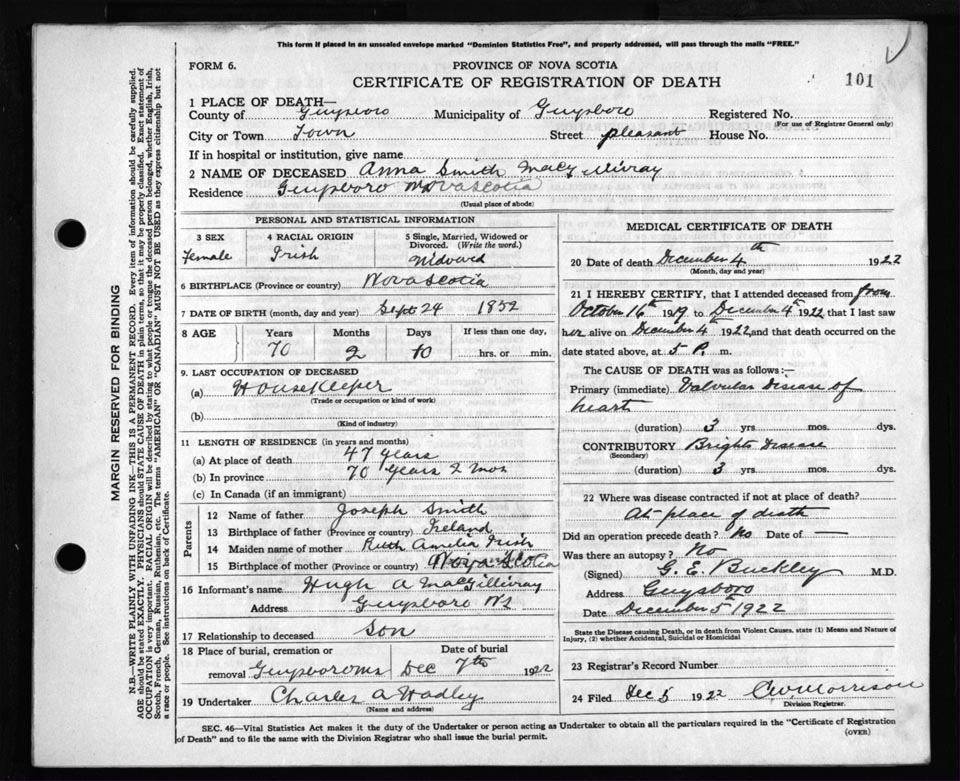 This form if placed in an unsealed envelope marked "Dominion Statistics Free", and properly addressed, will pass through the mails "FREE."
FORM 6.
PROVINCE OF NOVA SCOTIA
CERTIFICATE OF REGISTRATION OF DEATH
101
1 PLACE OF DEATH—
County of Guysboro Municipality of Guysboro Registered No.
(For use of Registrar General only)
City or Town Town Street pleasant House No.
If in hospital or institution, give name
2 NAME OF DECEASED Anna Smith MacGillivray
Residence Guysboro Nova Scotia
(Usual place of abode)
PERSONAL AND STATISTICAL INFORMATION
3 SEX
Female
4 RACIAL ORIGIN
Irish
5 Single, Married, Widowed or
Divorced. (Write the word.)
Widowed
6 BIRTHPLACE (Province or country) Nova Scotia
7 DATE OF BIRTH (month, day and year) Sept 24 1852
8 AGE
Years Months Days If less than one day,
70 2 10 hrs. or min.
9 LAST OCCUPATION OF DECEASED
(a) Housekeeper
(Trade or occupation or kind of work)
(b)
(Kind of industry)
11 LENGTH OF RESIDENCE (in years and months)
(a) At place of death 47 years
(b) In province 70 years 2 mos
(c) In Canada (if an immigrant)
Parents
12 Name of father Joseph Smith
13 Birthplace of father (Province or country) Ireland
14 Maiden name of mother Ruth Amelia
15 Birthplace of mother (Province or country) Nova Scotia
16 Informant's name Hugh A MacGillivray
Address Guysboro NS
17 Relationship to deceased Son
18 Place of burial, cremation or Date of burial
removal Guysboro NS Dec 7th 1922
19 Undertaker Charles A Hadley
(Name and address)
MEDICAL CERTIFICATE OF DEATH
20 Date of death December 4th 1922
(Month, day and year)
21 I HEREBY CERTIFY, that I attended deceased from
October 16th 1919 to December 4th 1922 that I last saw
her alive on December 4th 1922 and that death occurred on the
date stated above, at 5 P. m.
The CAUSE OF DEATH was as follows:—
Primary (immediate) Valvular Disease of
heart
(duration) 3 yrs. mos. dys.
CONTRIBUTORY Brights Disease
(Secondary)
(duration) 3 yrs. mos. dys.
22 Where was disease contracted if not at place of death?
At place of death
Did an operation precede death? No Date of —
Was there an autopsy? No
(Signed) G. E. Buckley M.D.
Address Guysboro
Date December 5 1922
State the Disease causing Death, or in death from Violent Causes, state (1) Means and Nature of
Injury, (2) whether Accidental, Suicidal or Homicidal
23 Registrar's Record Number
24 Filed Dec 5 1922 C W Morrison
Division Registrar.
SEC. 46—Vital Statistics Act makes it the duty of the Undertaker or person acting as Undertaker to obtain all the particulars required in the "Certificate of Registration
of Death" and to file the same with the Division Registrar who shall issue the burial permit.
(OVER)
MARGIN RESERVED FOR BINDING
N.B.—WRITE PLAINLY WITH UNFADING INK—THIS IS A PERMANENT RECORD. Every item of information should be carefully supplied.
AGE should be stated EXACTLY. PHYSICIANS should STATE CAUSE OF DEATH in plain terms, so that it may be properly classified. Exact statement of
OCCUPATION is very important. RACIAL ORIGIN will be described by stating to what people or tongue the deceased person belonged, whether English, Irish,
Scotch, French, German, Russian, Ruthenian, etc. The terms "AMERICAN" OR "CANADIAN" MUST NOT BE USED as they express citizenship but not
a race or people. See instructions on back of Certificate.